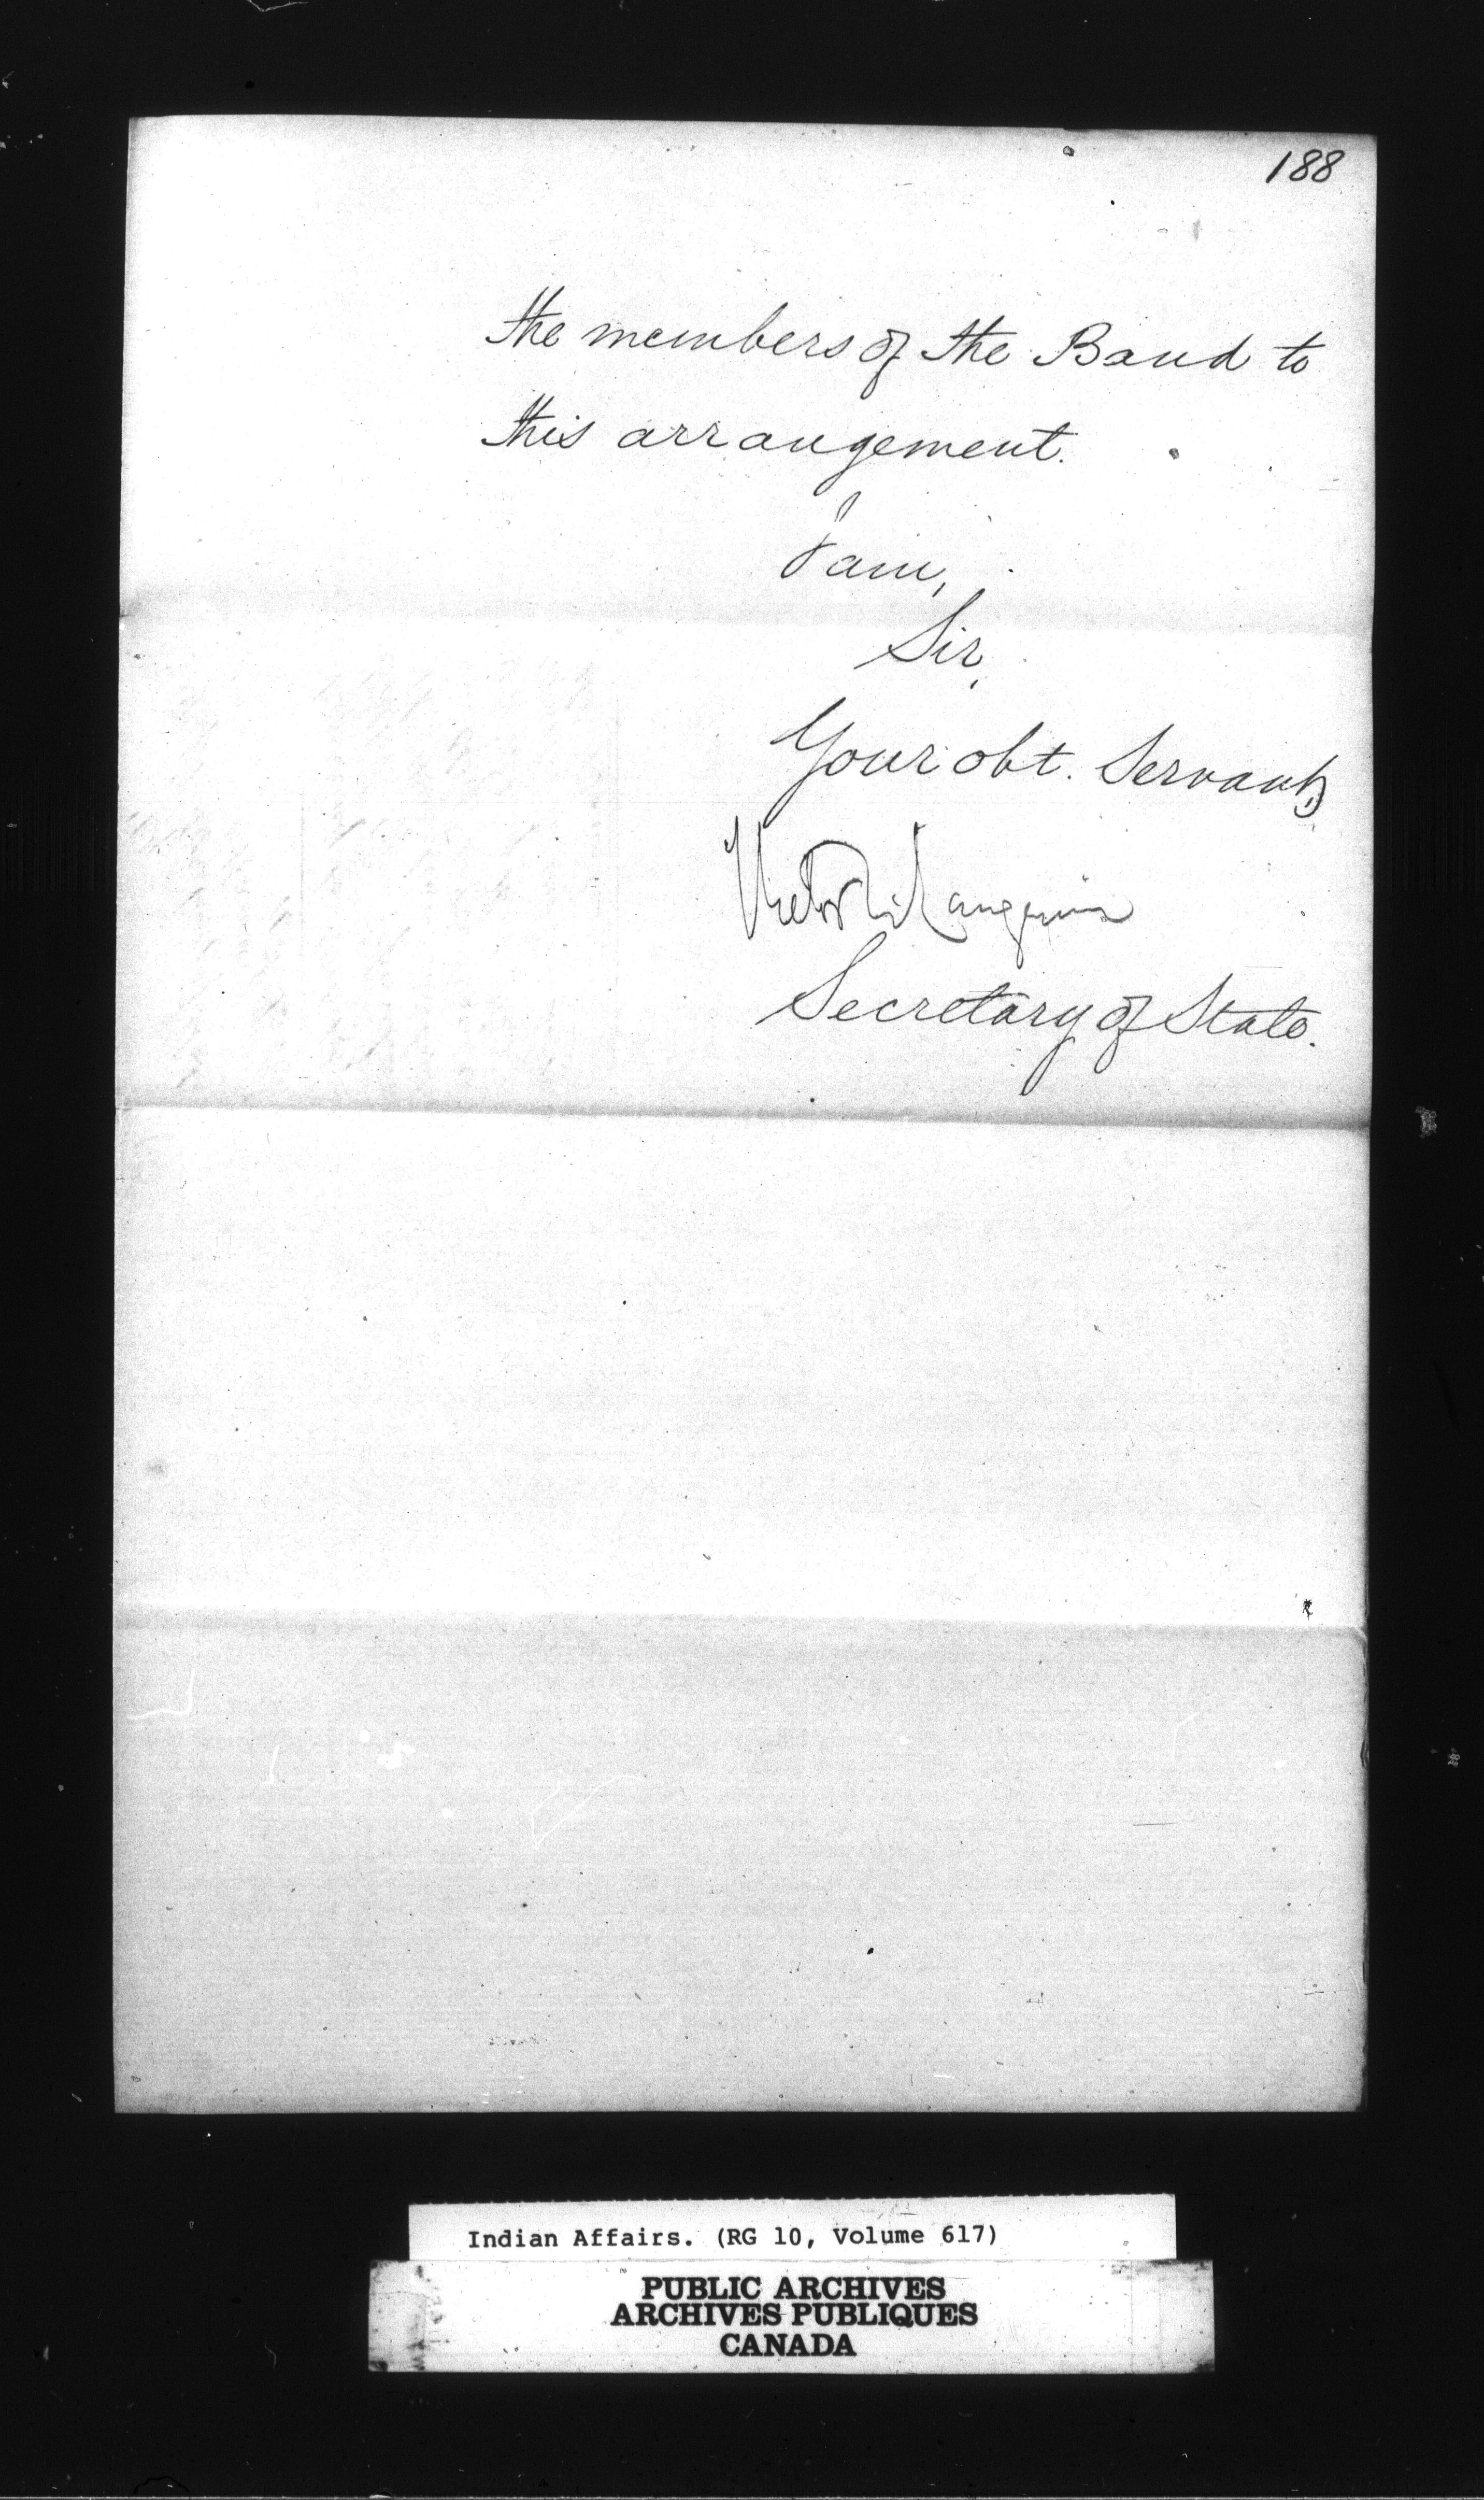 188
the members of the Band to
this arrangement.
I am,
Sir,
Your obt. Servant,
Hector L. Langevin
Secretary of State.
Indian Affairs. (RG 10, Volume 617)
PUBLIC ARCHIVES
ARCHIVES PUBLIQUES
CANADA